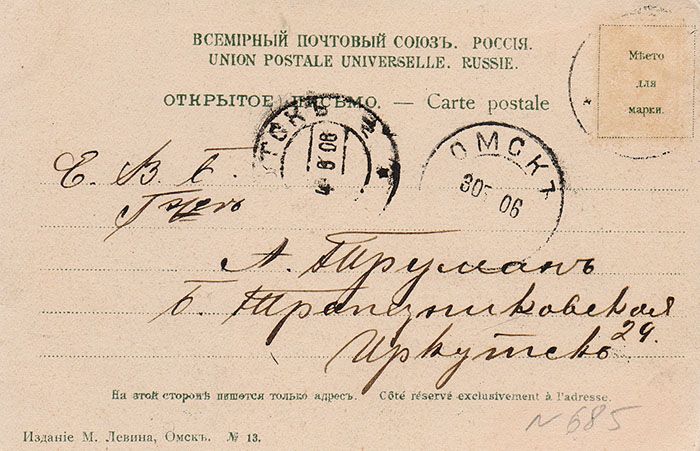 ВСЕМІРНЫЙ ПОЧТОВЫЙ СОЮЗЪ. РОССІЯ.
UNION POSTALE UNIVERSELLE. RUSSIE.
ОТКРЫТОЕ ПИСЬМО. — Carte postale
Мѣсто
для
марки.
ОМСКЪ
06
Е. В. Б.
А. Труманъ
Б. Трапезниковская
24.
Иркутскъ
На этой сторонѣ пишется только адресъ. Côté réservé exclusivement à l'adresse.
N 685
Изданіе М. Левина, Омскъ. № 13.